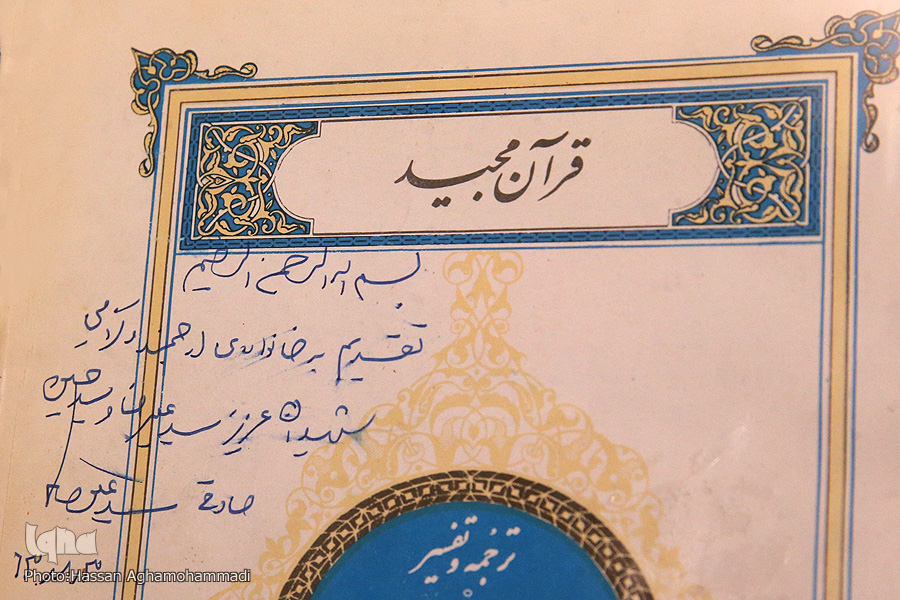 قرآن مجید
بسم الله الرحمن الرحیم
تقدیم به خانواده‌ی ارجمند و گرامی
شهیدان عزیز سید علیرضا و سید حسین
صادقی
ترجمه و تفسیر
iqna
Photo:Hassan Aghamohammadi